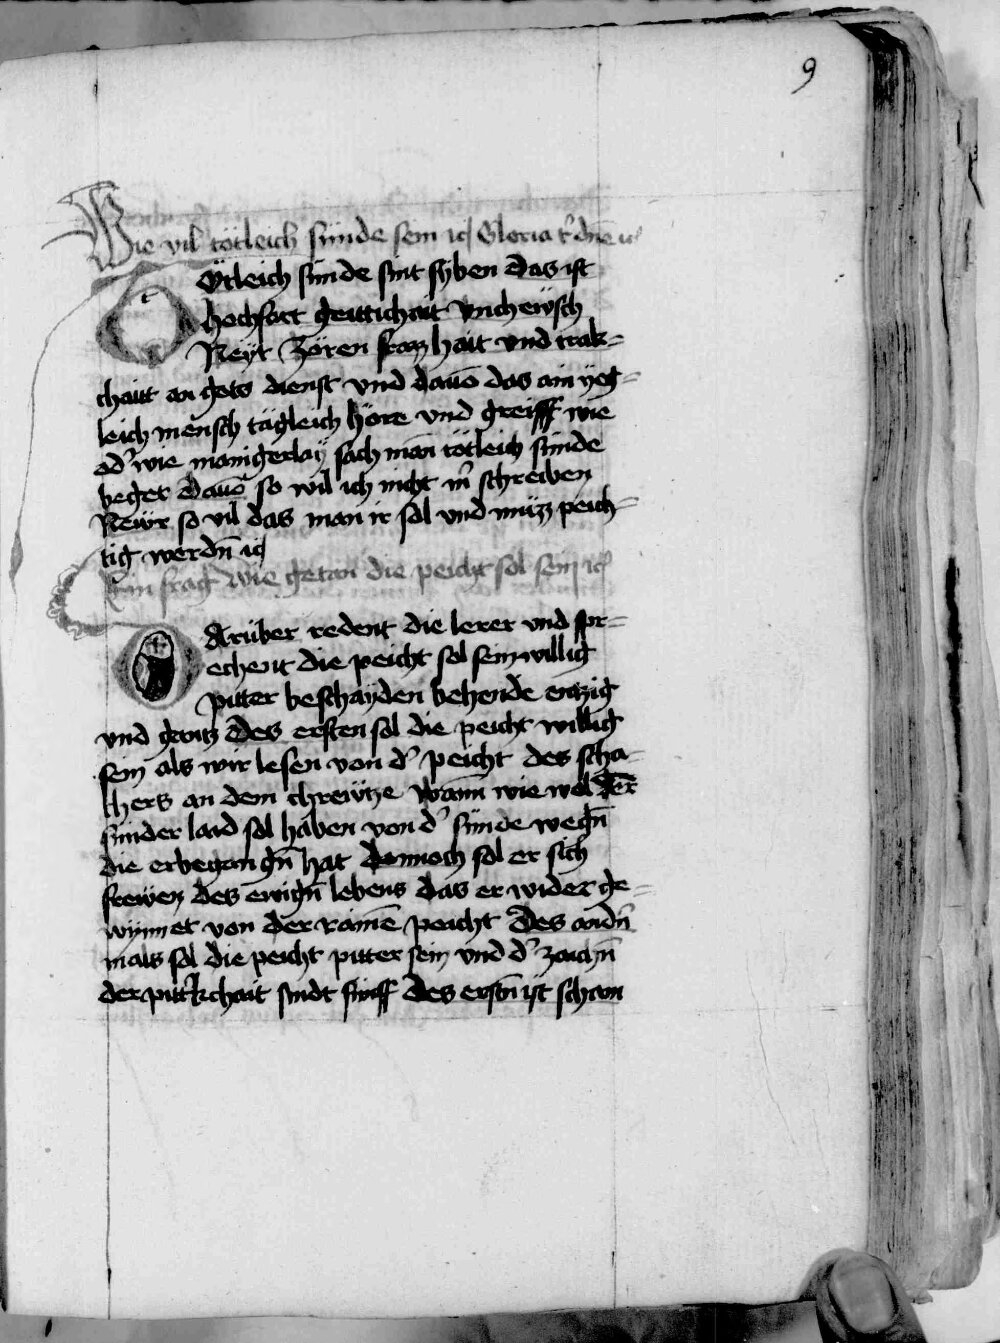 9
Wie vil tötleich sünde sein ꝛc Gloria t̾ dn̄e ꝛc
Ötleich sünde sint syben das ist
hochfart geittichait vncheüsch
Neyt zoren frazhait vnd trak-
chait an gots dienst vnd dauō das ain yeg-
leich mensch tägleich höre vnd greifff wie
od̾ wie manigerlaÿ sach man tötleich sünde
beget dauō so wil ich nicht m̾ schreiben
Newr so vil das man ir sol vnd müzz peich-
tig werdn̄ ꝛc
Ein frag wie getan die peicht sol sein ꝛc
Arüber redent die lerer vnd spr-
echent die peicht sol sein willig
pitter beschayden behende entzig
vnd gantz Des ersten sol die peicht willig
sein als wir lesen von d̾ peicht des scha-
chers an dem chrewtze Wann wie wol der
sünder laid sol haben von d̾ sünde wegn̄
die er began gn̄ hat Dannoch sol er sich
frewen des ewign̄ lebens das er wider ge-
wynnet von der rainē peicht Des andn̄
mals sol die peicht pitter sein vnd d̾ zaichn̄
der pittkchait sindt fünff Des erstn̄ ist scham